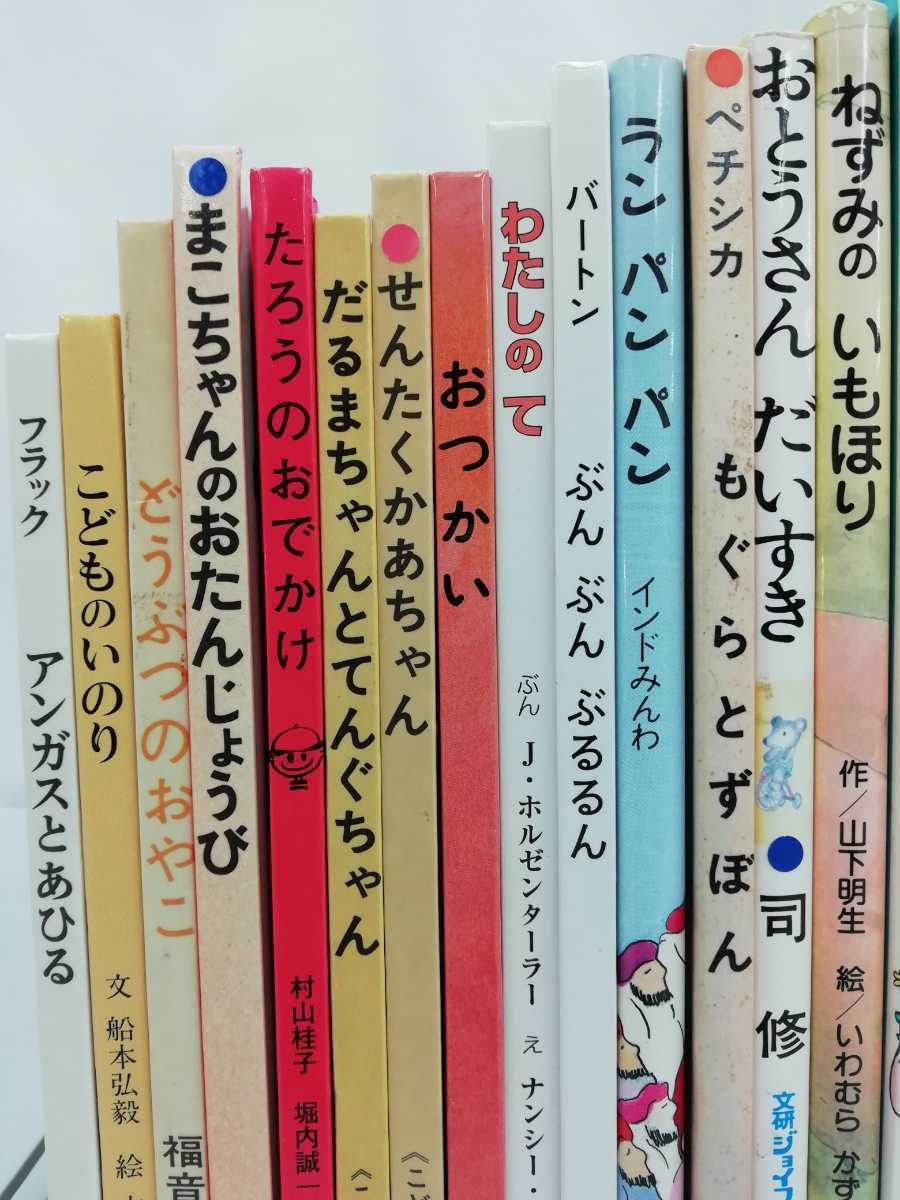 フラック アンガスとあひる
こどものいのり 文 船本弘毅 絵
どうぶつのおやこ 福音
まこちゃんのおたんじょうび
たろうのおでかけ 村山桂子 堀内誠一
だるまちゃんとてんぐちゃん 《こ
せんたくかあちゃん 《こど
おつかい
わたしの て ぶん J・ホルゼンターラー え ナンシー・
バートン ぶん ぶん ぶるるん
ラン パン パン インドみんわ
ペチシカ もぐらとずぼん
おとうさん だいすき 司 修 文研ジョイフ
ねずみの いもほり 作/山下明生 絵/いわむら かず